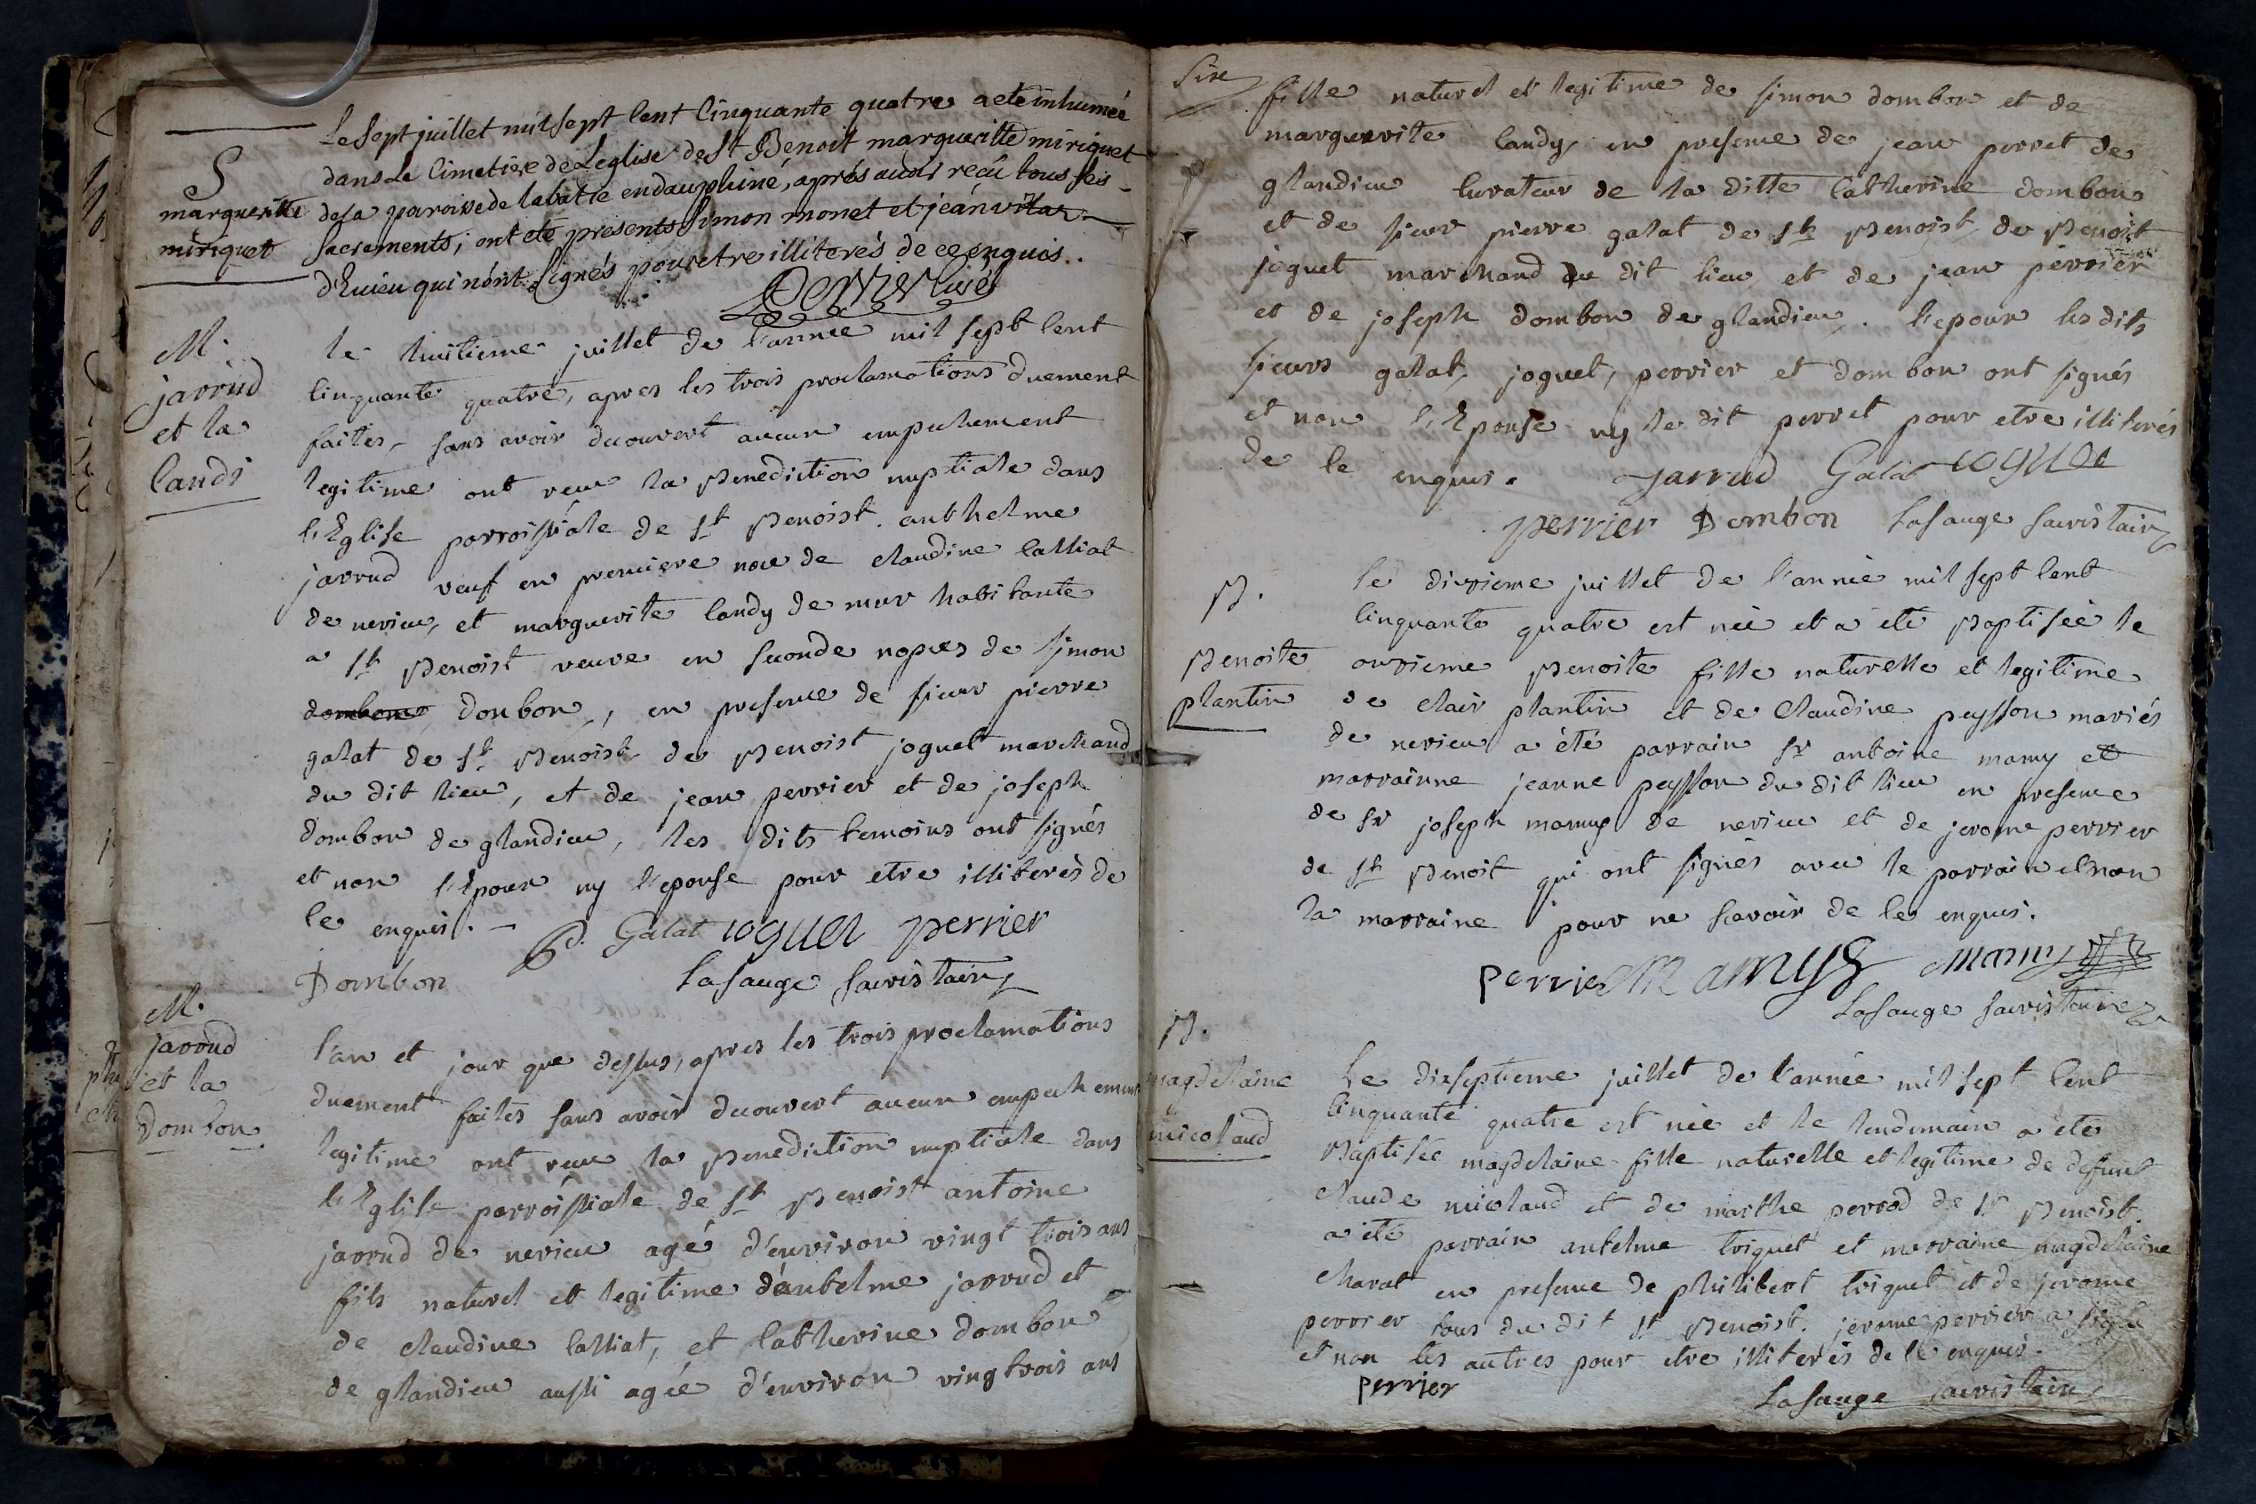 Le Sept juillet mil sept Cent Cinquante quatre a eté inhumeé
S
marguerite
miriquet
dans Le Cimetiere de Leglise de St Benoit margueritte miriquet
de la paroise de labatie en dauphiné, aprés avoir reçû tous ses
Sacrements; ont eté presents Simon monet et jéan
d'Ecuieu qui nónt Signés pour etre illiterés de ce enquis..
Perrier Curé
M.
jarrud
et la
Candi
le huitieme juillet de l'année mil sept Cent
Cinquante quatre, apres les trois proclamations duement
faites, sans avoir decouvert aucun empechement
legitime ont reçu la Benediction nuptiale dans
l'Eglise parroissiale de St Benoist anthelme
jarrud veuf en premiere noce de claudine Calliat
de nerieu, et marguerite Candy de mur habitante
a St Benoist veuve en seconde nopces de Simon
dombon donbon, en presence de sieur pierre
galat de St Benoist de Benoist joguet marchand
du dit lieu, et de jean perrier et de joseph
dombon de glandieu, les dits temoins ont signés
et non l'Epoux ny l'epouse pour etre illiterés de
Ce enquis. -
P. Galat ioguet perrier
Dombon
Lasauge Sacristain
M.
jarrud
et la
Dombon
l'an et jour que dessus, apres les trois proclamations
duement faites sans avoir decouvert aucun empechement
legitime ont reçu la Benediction nuptiale dans
l'Eglise parroissiale de St Benoist antoine
jarrud de nerieu agé d'environ vingt trois ans
fils naturel et legitime d'antelme jarrud et
de claudine Calliat, et Catherine dombon
de glandieu aussi agée d'environ vingt trois ans
Sixe
fille naturel et legitime de simon dombon et de
marguerite Candy, en presence de jean perret de
glandieu Curateur de la ditte Catherine dombon
et de sieur pierre galat de St Benoist, de Benoit
joguet marchand du dit lieu et de jean perrier
et de joseph dombon de glandieu. l'epoux les dits
sieurs galat, joguet, perrier et dombon ont signés
et non l'Epouse ny le dit perret pour etre illiterés
de Ce enquis.
Jarrud Galat ioguet
perrier Dombon Lasauge Sacristain
B.
Benoite
plantin
le dixieme juillet de l'année mil sept Cent
Cinquante quatre est née et a eté Baptisée le
onzieme Benoite fille naturelle et legitime
de clair plantin et de Claudine peysson mariés
de nerieu a été parrain Sr antoine mamy et
marrainne jeanne peysson du dit lieu en presence
de Sr joseph mamy de nerieu et de jerome perrier
de St Benoit qui ont signés avec le parrain et non
la marraine pour ne savoir de Ce enquis.
perrier Mamys Mamy
Lasauge Sacristain
B.
magdelaine
micolaud
Le dixseptieme juillet de l'année mil sept Cent
Cinquante quatre est née et le lendemain a eté
Baptisée magdelaine fille naturelle et legitime de defunt
claude micolaud et de marthe perrod de St Benoist.
a été parrain antelme triquet et marraine magdelaine
charat en presence de philibert triquet et de jerome
perrier tous du dit St Benoist. jerome perrier a signé
et non les autres pour etre illiterés de Ce enquis.
perrier
Lasauge Sacristain